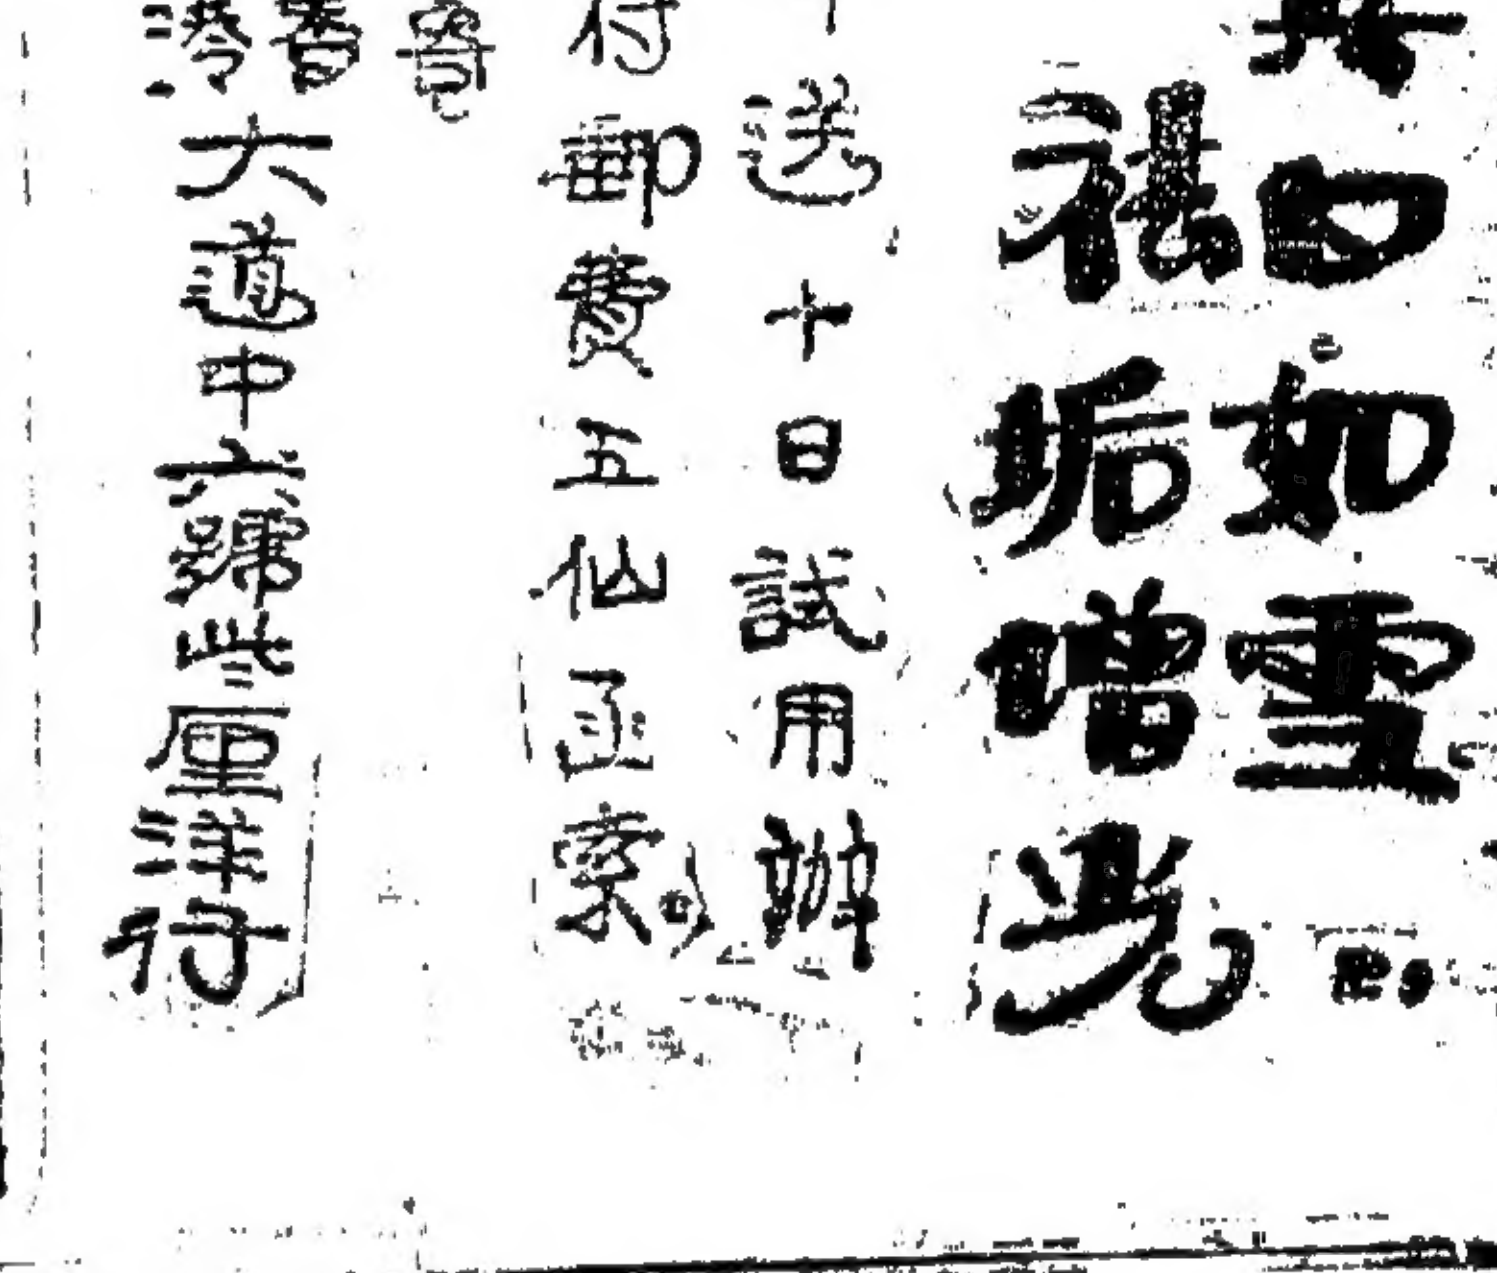 白如雪
祛垢增光
送十日試用辦
付郵費五仙函索
寄
香
港大道中六號些厘洋行